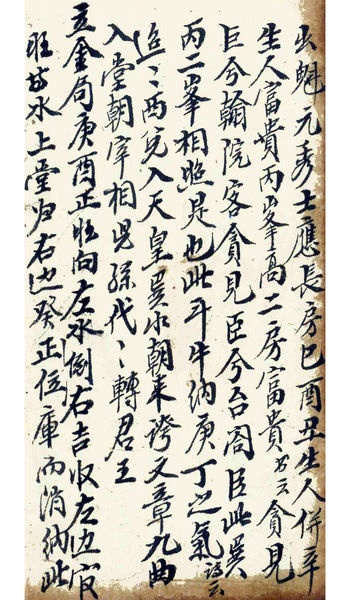 出魁元秀士應長房巳酉丑生人併辛
生人富貴丙峯高二房富貴書云貪見
巨兮翰院客貪見臣兮台閣臣此巽
丙二峯相照是也此斗牛納庚丁之氣詩云
迢〻西兌入天皇巽水朝来誇文章九曲
入堂朝宰相兒孫代〻轉君王
五金局庚酉正旺向左水倒右吉收左边官
旺方水上堂归右边癸正位庫而消納此